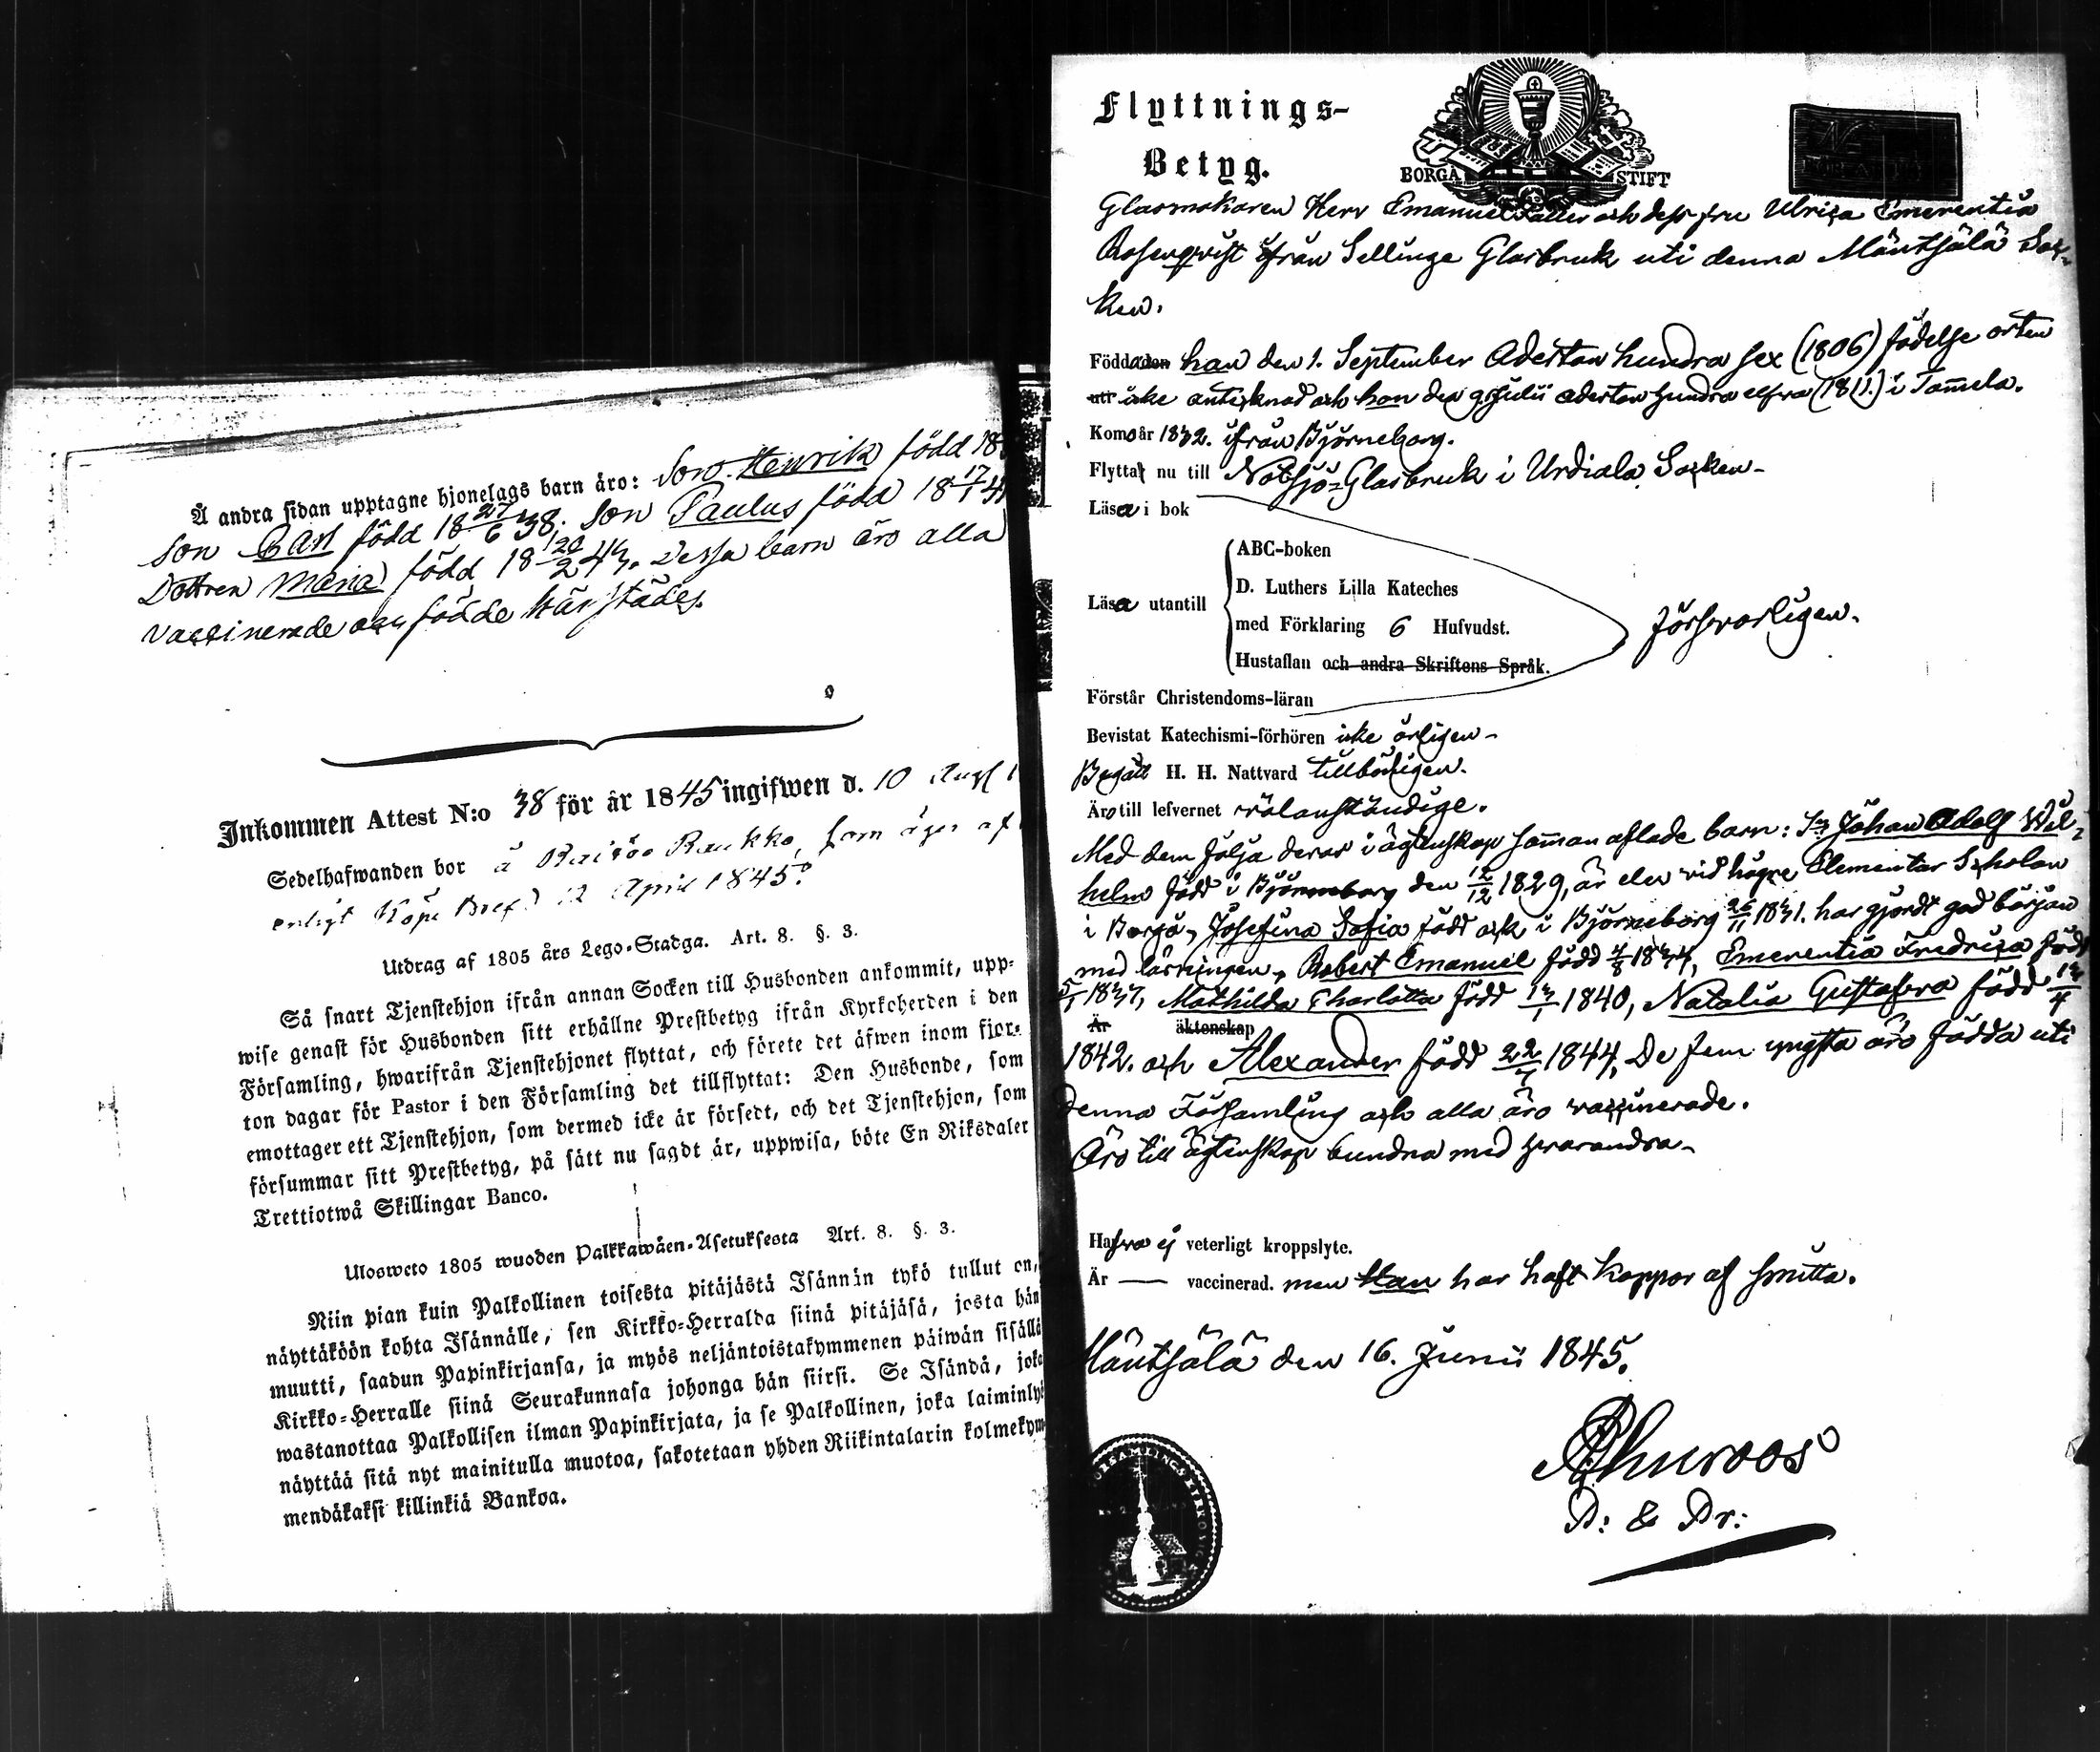 Å andra sidan upptagne hjonelags barn äro: Son Henrik född 18
Son Carl född 18 27/6 38. Son Paulus född 18 17/1 4
Dottren Maria född 18 20/2 43. Dessa barn äro alla
vaccinerade och födde härstädes.
Inkommen Attest N:o 38 för år 1845 ingifwen d. 10 Aug
Sedelhafwanden bor å Raukko, som äger af
enligt Köpe Bref 12 April 1845.
Utdrag af 1805 års Lego-Stadga. Art. 8. §. 3.
Så snart Tjenstehjon ifrån annan Socken till Husbonden ankommit, upp-
wise genast för Husbonden sitt erhållne Prestbetyg ifrån Kyrkoherden i den
Församling, hwarifrån Tjenstehjonet flyttat, och förete det äfwen inom fjor-
ton dagar för Pastor i den Församling det tillflyttat: Den Husbonde, som
emottager ett Tjenstehjon, som dermed icke är försedt, och det Tjenstehjon, som
försummar sitt Prestbetyg, på sätt nu sagdt är, uppwisa, böte En Riksdaler
Trettiotwå Skillingar Banco.
Ulosweto 1805 wuoden Palkkawäen-Asetuksesta Art. 8. §. 3.
Niin pian kuin Palkollinen toisesta pitäjästä Isännän tykö tullut on,
näyttäköön kohta Isännälle, sen Kirkko-Herralda siinä pitäjäsä, josta hän
muutti, saadun Papinkirjansa, ja myös neljäntoistakymmenen päiwän sisällä
Kirkko-Herralle siinä Seurakunnasa johonga hän siirsi. Se Isändä, joka
wastanottaa Palkollisen ilman Papinkirjata, ja se Palkollinen, joka laiminly
näyttää sitä nyt mainitulla muotoa, sakotetaan yhden Riikintalarin kolmekym
mendäkaksi killinkiä Bankoa.
Flyttnings-
Betyg.
BORGÅ STIFT
Glasmakaren Herr Emanuel och dess fru Ulrica Emerentia
Rosenqvist ifrån Sellinge Glasbruk uti denna Mäntsälä Soc-
ken.
Födda den han den 1. September Adertonhundra sex (1806) födelse orten
uti icke antecknad och hon den 9 Julii adertonhundra elfva (1811.) i Tammela.
Komo år 1832. ifrån Björneborg.
Flytta nu till Notsjö Glasbruk i Urdiala Socken
Läsa i bok
Läsa utantill
ABC-boken
D. Luthers Lilla Kateches
med Förklaring 6 Hufvudst.
Hustaflan och andra Skriftens Språk.
försvarligen.
Förstår Christendoms-läran
Bevistat Katechismi-förhören icke årligen
Begått H. H. Nattvard tillbörligen.
Äro till lefvernet wälanständige.
Med dem följa deras i ägtenskap samman aflade barn: Sn Johan Adolf Wil-
helm född i Björneborg den 12/12 1829, är elev vid högre Elementar Scholan
i Borgå, Josefina Sofia född ock i Björneborg 26/11 1831. har gjordt god början
med läsningen, Robert Emanuel född 4/8 1834, Emerentia Fredrica född
5/1 1837, Mathilda Charlotta född 13/1 1840, Natalia Gustafva född 13/4
Är äktenskap
1842. och Alexander född 22/7 1844, De fem yngsta äro födda uti
denna Församling och alla äro vaccinerade.
Äro till ägtenskap bundna med hvarandra
Hafva ej veterligt kroppslyte.
Är — vaccinerad. men Han har haft koppor af smitta.
Mäntsälä den 16. Junii 1845.
P: & Pr: